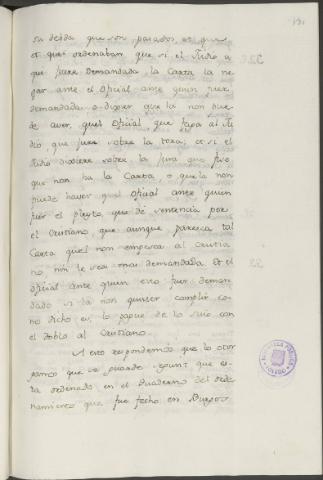 131
su debda que son pasados, et que
et que ordenaban que si el Judio a
que fuere demandada la Carta la ne
gar ante el oficial ante quien fuer
demandada o dixier que la non pue
de aver, quel oficial, que faga al Ju
dio que jure sobre la tora; et si el
Judio dixiere sobre la jura que fizo,
que non ha la Carta, o que la non
puede haver quel oficial ante quien
fuer el pleyto que dé sentencia por
el Cristiano que aunque paresca tal
Carta quel non empesca al Cristia
no, nin le sea mas demandada et el
oficial ante quien esto fuer deman
dado si lo non quisier complir co
mo dicho es, lo peche de lo suio con
el doblo al Cristiano.
A esto respondemos que lo otor
gamos que se guarde segunt que es
ta ordenado en el Quaderno del orde
namiento que fue fecho en Burgos
BIBLIOTECA PUBLICA
TOLEDO